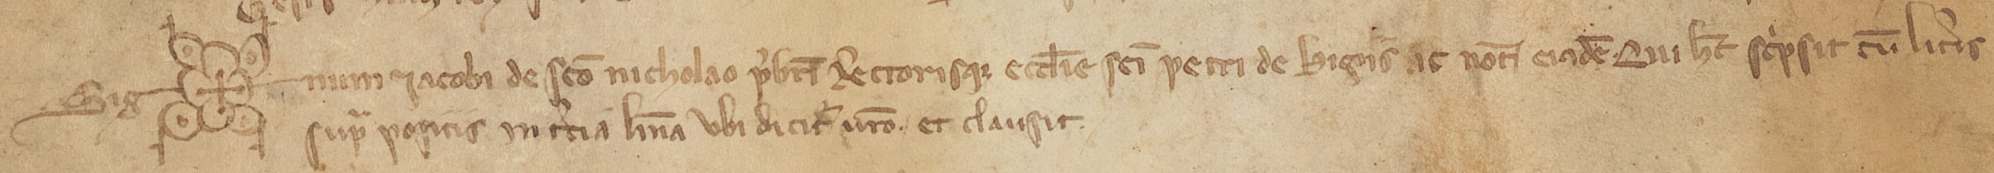 Sig num Iacobi de sco nicholao prbri Rectorisque ecclie sci petri de bigis ac noti eiusde Qui h scripsit cu litris
supra positis in tercia linea ubi dicitr uro et clausit.